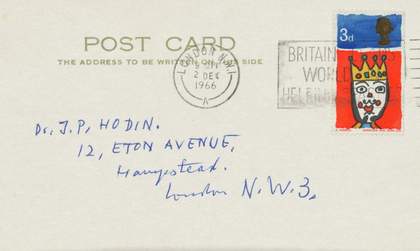 POST CARD
THE ADDRESS TO BE WRITTEN ON THIS SIDE
LONDON N.W.1
2 DEC
1966
A
BRITAIN
WORLD
3d
Dr. J.P. HODIN.
12, ETON AVENUE,
Hampstead.
London N.W.3.